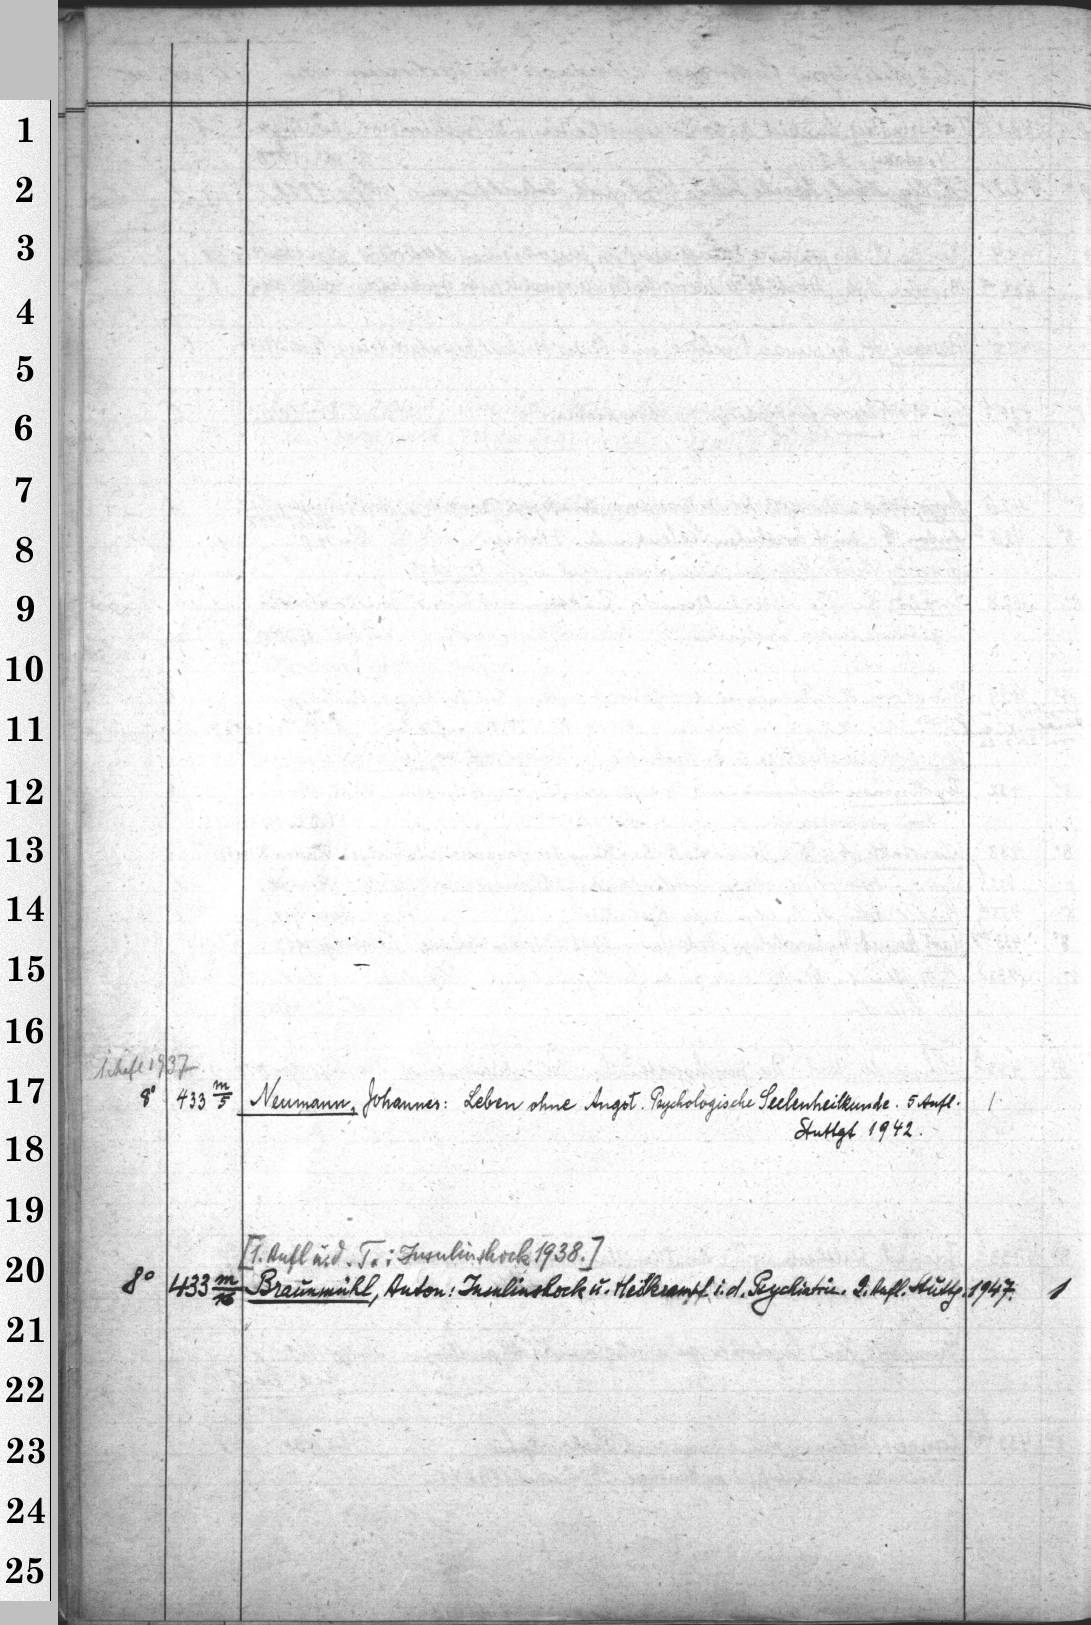 1
2
3
4
5
6
7
8
9
10
11
12
13
14
15
16
1937.
17
8° 433 m/5 Neumann, Johannes: Leben ohne Angst. Psychologische Seelenheilkunde. 5 Aufl. 1
Stuttgt 1942.
18
19
[1. Aufl. u. d. T.: Insulinshock 1938.]
20
8° 433 m/16 Braunmühl, Anton: Insulinshock u. Heilkrampf i. d. Psychiatrie. 2. Aufl. Stuttg. 1947. 1
21
22
23
24
25